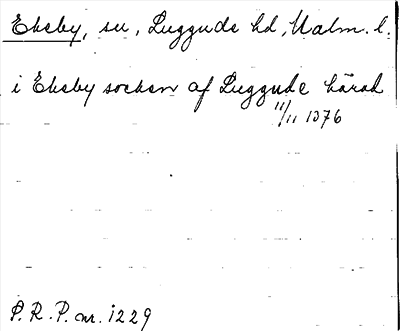 Ekeby, sn, Luggude hd, Malm. l.
i Ekeby socken af Luggude härad
11/11 1376
P. R. P. nr. 1229